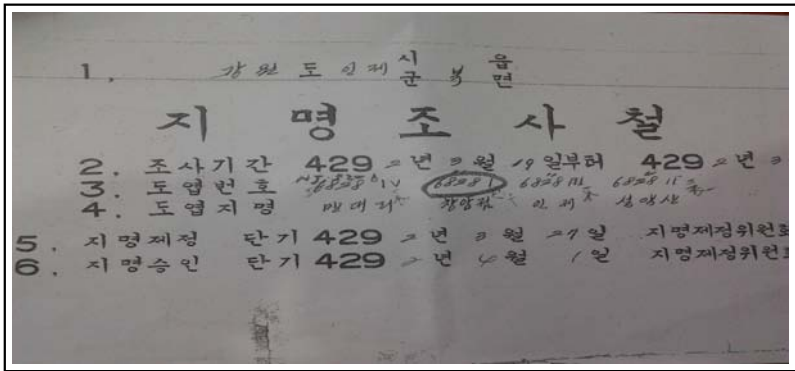 1. 강원도 인제 시군 북 읍면
지명조사철
2. 조사기간 4292년 3월 19일부터 4292년 3
3. 도엽번호 6828 IV 6828 I 6828 III 6828 II
4. 도엽지명 인제 설악산
5. 지명제정 단기 4292년 3월 27일 지명제정위원회
6. 지명승인 단기 4292년 4월 1일 지명제정위원회